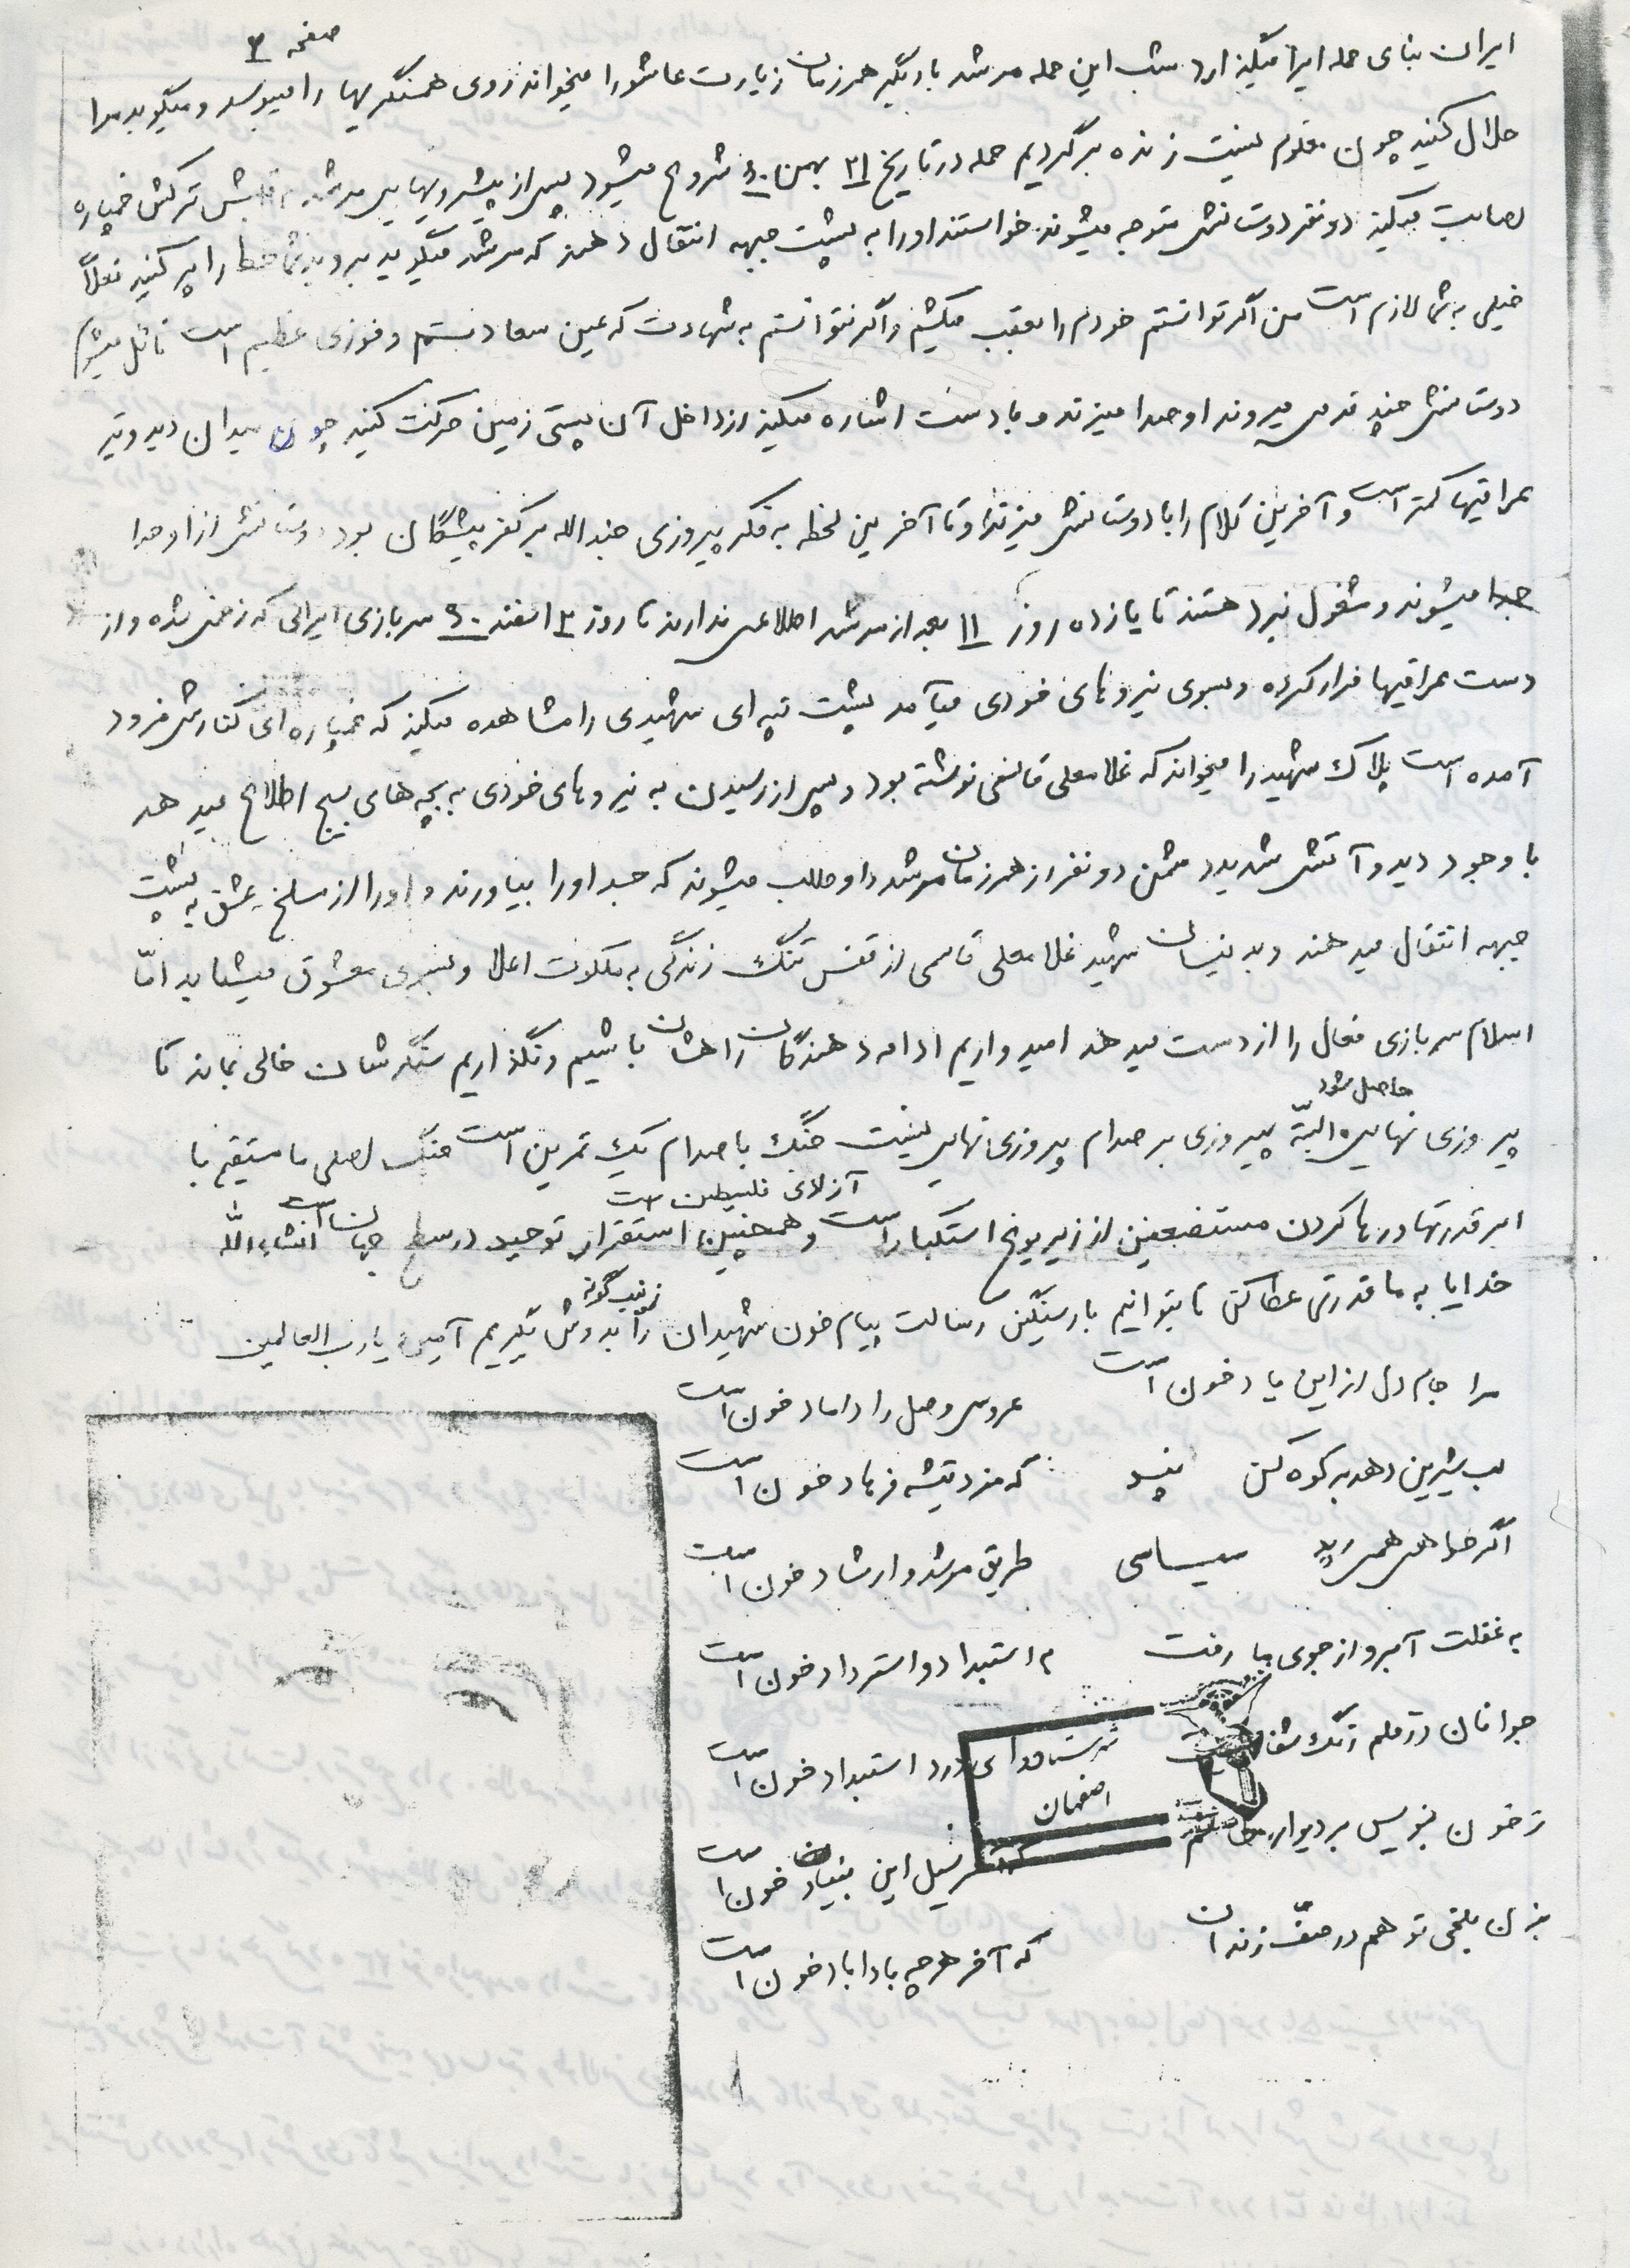 صفحه ۳
ایران بنای حمله ایرا میگذارد شب این حمله مرشد بار دیگر همرزمان زیارت عاشورا میخواند روی همسنگریها را میبوسد و میگوید مرا
حلال کنید چون معلوم نیست زنده برگردیم حمله در تاریخ ۲۱ بهمن ۶۰ شروع میشود پس از پیشرویهایی مرشد به ترکش خمپاره
اصابت میکند دو نفر دوستانش متوجه میشوند خواستند او را به پشت جبهه انتقال دهند که مرشد میگوید بروید شما خط را پر کنید فعلاً
خیلی به شما لازم است من اگر توانستم خودم را بعقب میکشم و اگر نتوانستم به شهادت که عین سعادتستم و فوزی عظیم است نائل میشوم
دوستانش چند قدمی میروند او صدا میزند و با دست اشاره میکند از داخل آن پستی زمین حرکت کنید چون میدان دید و تیر
عراقیها کمتر است و آخرین کلام را با دوستانش میزند و تا آخرین لحظه به فکر پیروزی جندالله بر کفر پیشگان بود دوستانش از او جدا
جدا میشوند و مشغول نبرد هستند تا یازده روز ۱۱ بعد از مرشد اطلاعی ندارند تا روز ۳ اسفند ۶۰ سربازی ایرانی که زخمی شده و از
دست عراقیها فرار کرده و بسوی نیروهای خودی میآمد پشت تپه ای شهیدی را مشاهده میکند که خمپاره ای کنارش فرود
آمده است پلاک شهید را میخواند که غلامعلی قاسمی نوشته بود و پس از رسیدن به نیروهای خودی به بچه های بسیج اطلاع میدهد
با وجود دید و آتش شدید دشمن دو نفر از همرزمان مرشد داوطلب میشوند که جسد او را بیاورند و او را از مسلخ عشق به پشت
جبهه انتقال میدهند و بدینسان شهید غلامعلی قاسمی از قفس تنگ زندگی به ملکوت اعلا و بسوی معشوق میشتابد امّا
اسلام سربازی فعال را از دست میدهد امیدواریم ادامه دهندگان راهشان باشیم و نگذاریم سنگرشان خالی بماند تا
پیروزی نهایی حاصل شود البتّه پیروزی بر صدام پیروزی نهایی نیست جنگ با صدام یک تمرین است جنگ اصلی ما مستقیم با
ابر قدرتها و رها کردن مستضعفین از زیر یوغ استکبار است و همچنین آزادی فلسطین است استقرار توحید در سطح جهان است انشاءالله
خدایا به ما قدرتی عطا کن تا بتوانیم بار سنگین رسالت پیام خون شهیدان را زینب گونه بدوش بگیریم آمین یا رب العالمین
مرا جام دل از این یاد خون است عروس وصل را داماد خون است
لب شیرین دهد بر کوه کن پند که مزد تیشه فرهاد خون است
اگر خواهی همی سیاسی طریق مرشد و ارشاد خون است
به غفلت آبرو از جوی ما رفت استبداد و استرداد خون است
جوانان در قلم رنگ استبداد خون است
اصفهان
ز خون بنویس بر دیوار سیل این بنیاد خون است
بزن بلخی تو هم در صفّ زندان که آخر هر چه بادا باد خون است